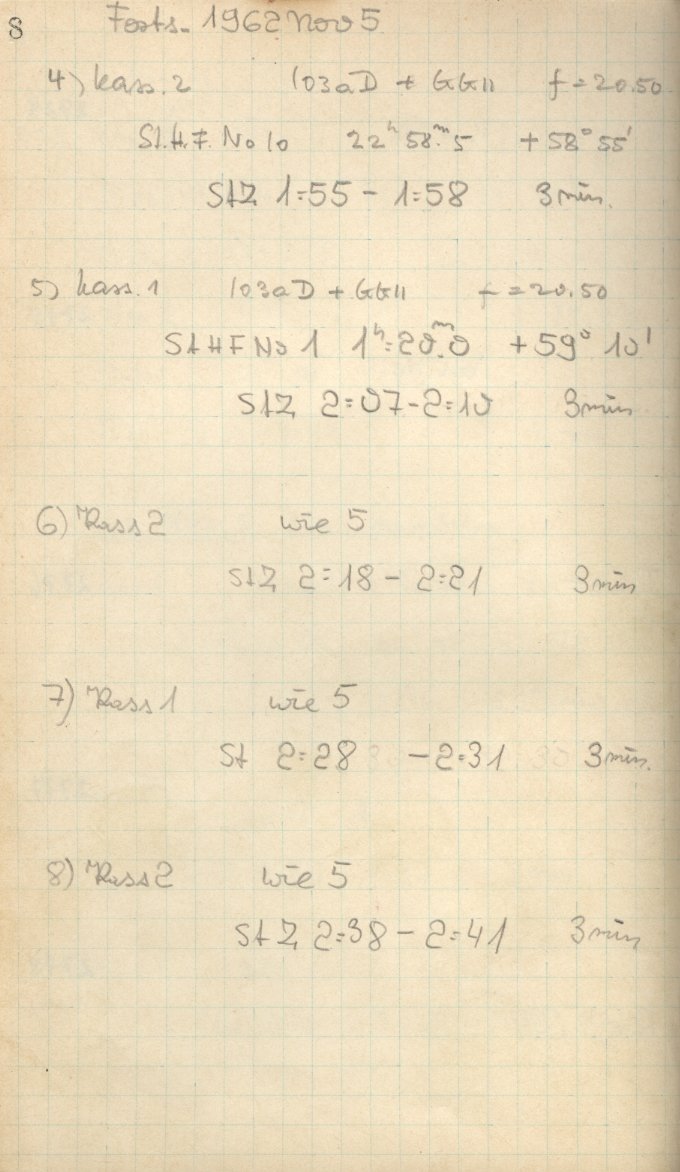 8
Forts. 1962 Nov 5
4) Kass. 2 103aD + GG11 f = 20.50
St.H.F. No 10 22h 58m.5 +58° 55'
StZ 1:55 - 1:58 3 min.
5) Kass. 1 103aD + GG11 f = 20.50
StHF No 1 1h:20m.0 +59° 10'
StZ 2:07 - 2:10 3 min
6) Kass 2 wie 5
StZ 2:18 - 2:21 3 min
7) Kass 1 wie 5
St 2:28 - 2:31 3 min.
8) Kass 2 wie 5
StZ 2:38 - 2:41 3 min